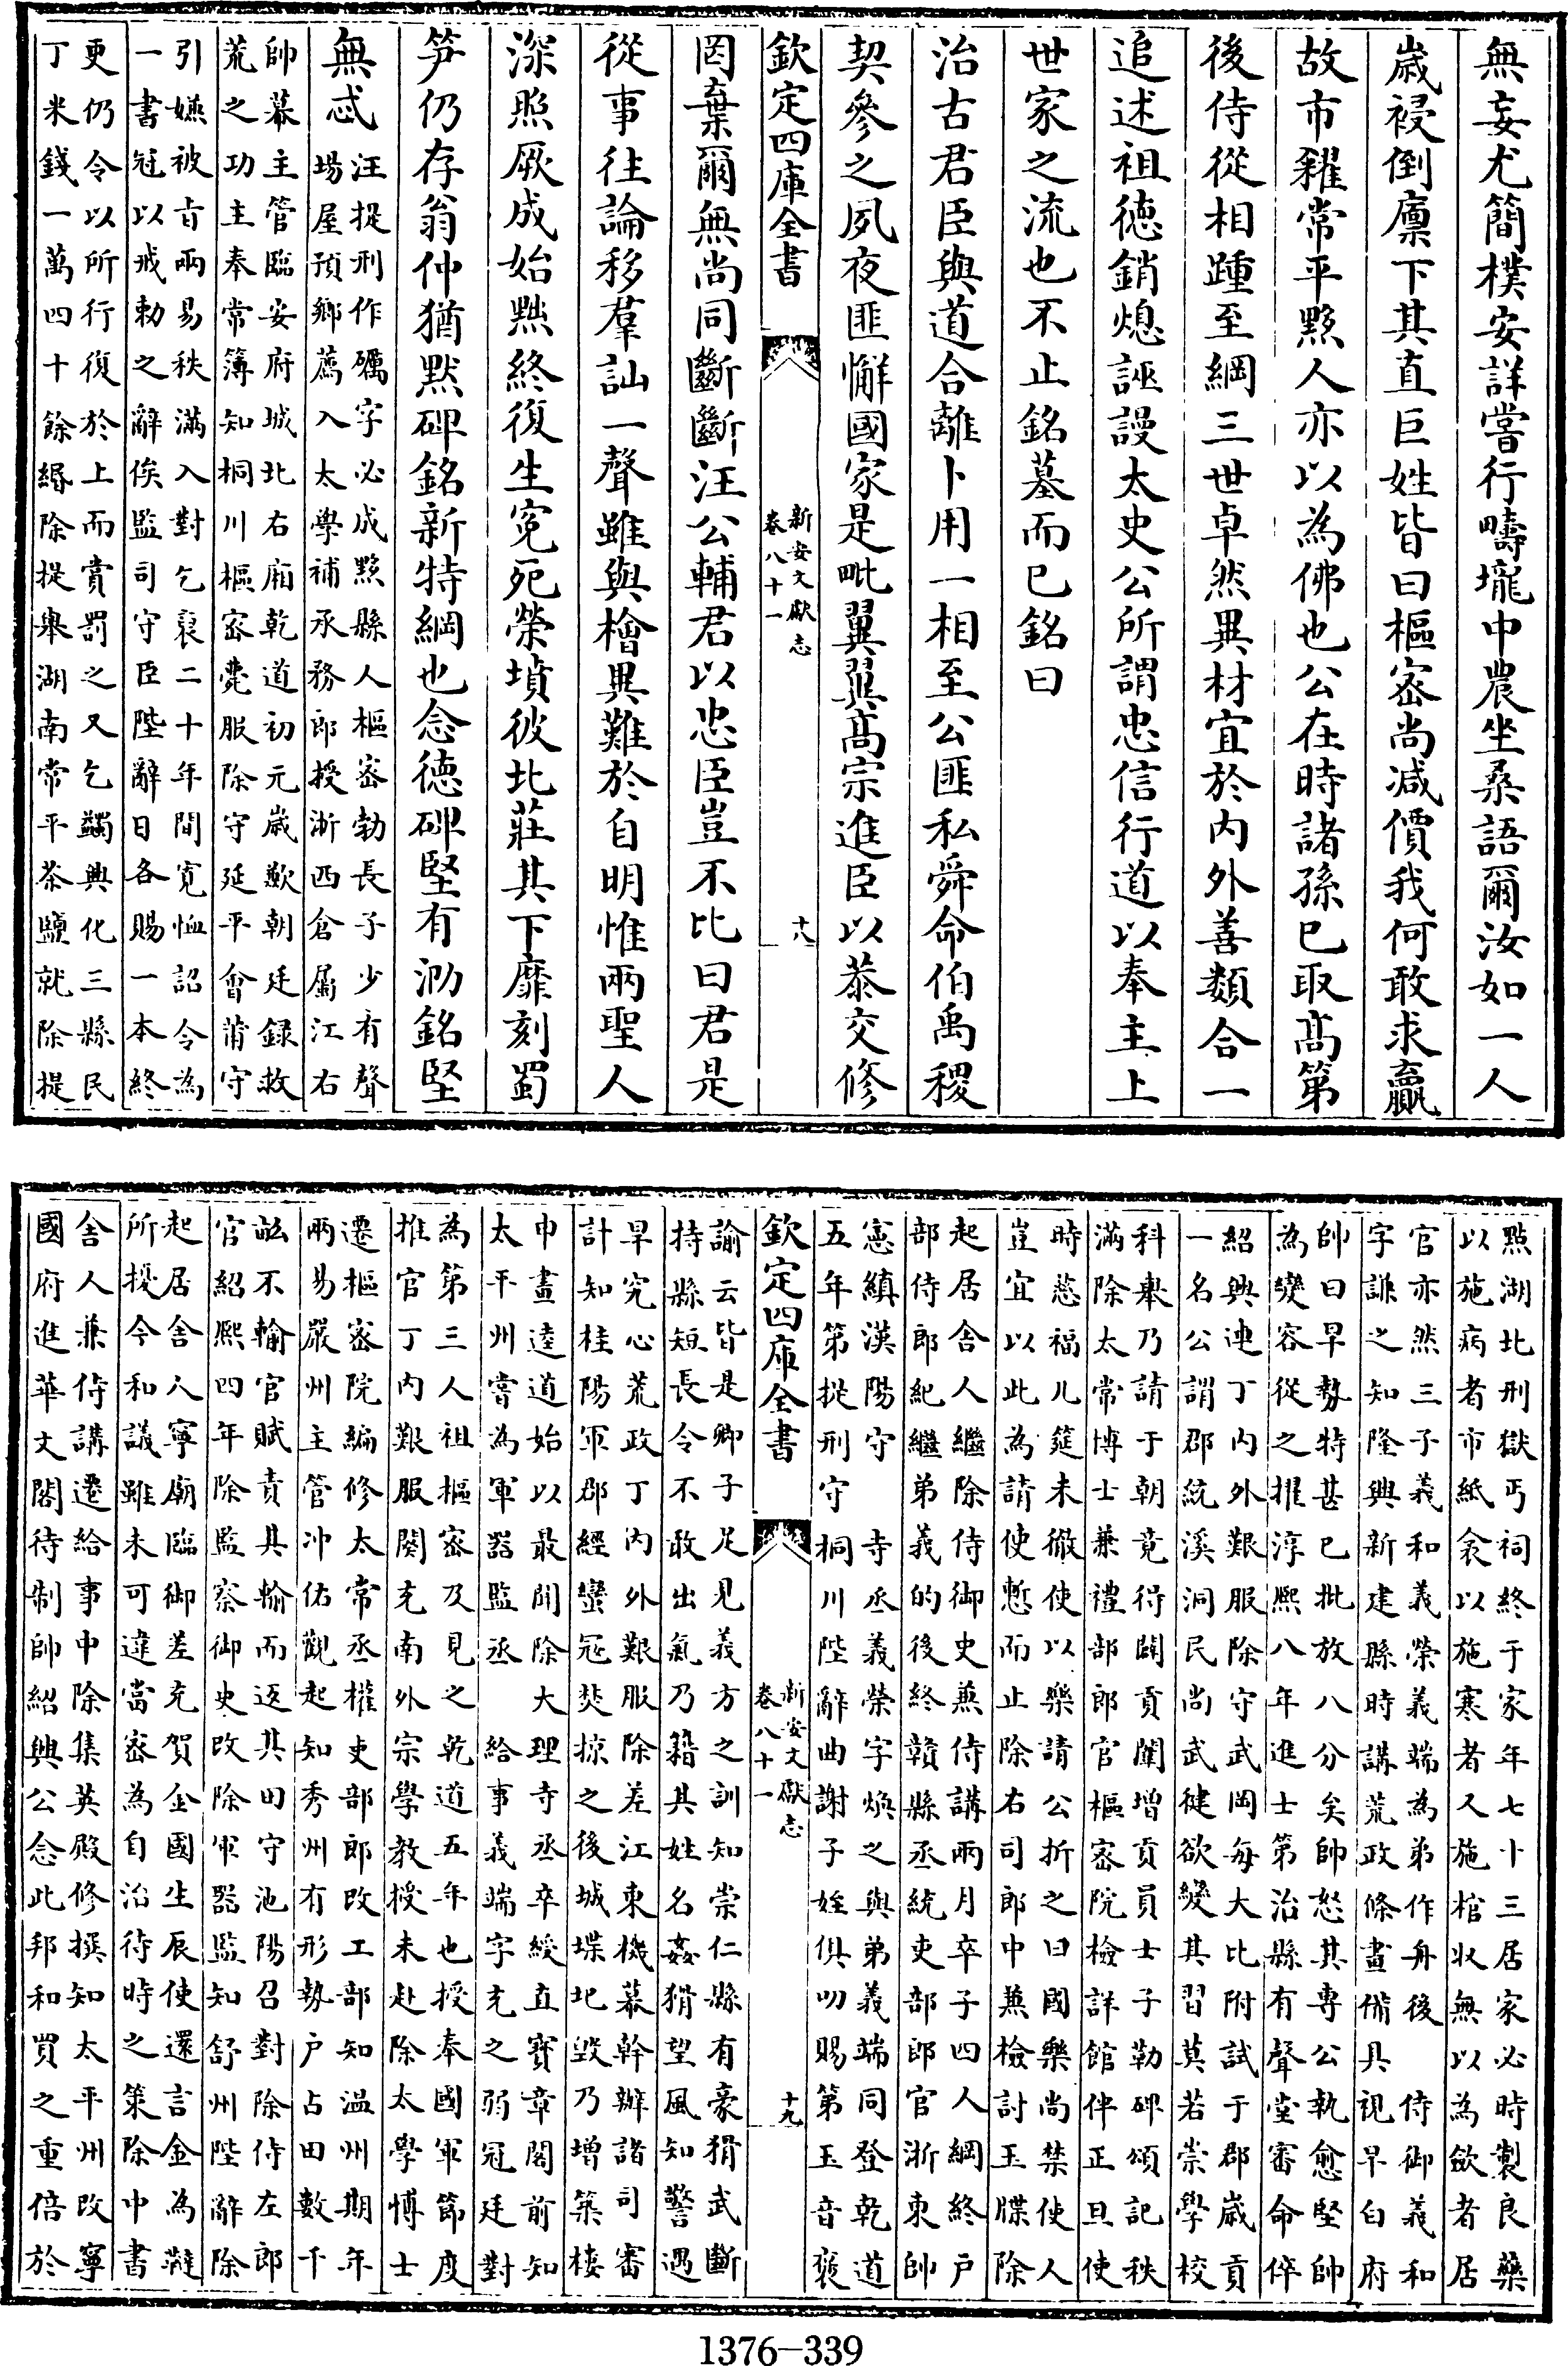 無妄尤簡樸安詳嘗行疇壠中農坐桑語爾汝如一人
歲祲倒廪下其直巨姓皆曰樞宻尚减價我何敢求贏
故市糴常平黟人亦以為佛也公在時諸孫已取髙第
後侍從相踵至綱三世卓然異材宜於内外善類合一
追述祖徳銷熄誣謾太史公所謂忠信行道以奉主上
世家之流也不止銘墓而已銘曰
治古君臣與道合離卜用一相至公匪私舜命伯禹稷
契參之夙夜匪懈國家是毗翼翼髙宗進臣以恭交修
欽定四庫全書
新安文獻志
卷八十一
十八
罔棄爾無尚同斷斷汪公輔君以忠臣豈不比曰君是
從事往論移羣訕一聲雖與檜異難於自明惟兩聖人
深照厥成始黜終復生寃死榮墳彼北莊其下靡刻蜀
笋仍存翁仲猶黙碑銘新特綱也念徳碑堅有泐銘堅
無忒
汪提刑作礪字必成黟縣人樞宻勃長子少有聲
場屋預鄉薦入太學補承務郎授浙西倉屬江右
帥幕主管臨安府城北右廂乾道初元歲歉朝廷録救
荒之功主奉常簿知桐川樞宻薨服除守延平㑹莆守
引嫌被㫖兩易秩滿入對乞裒二十年間寛恤詔令為
一書冠以戒勅之辭俟監司守臣陛辭日各賜一本終
更仍令以所行復於上而賞罰之又乞蠲興化三縣民
丁米錢一萬四十餘緡除提舉湖南常平茶鹽就除提
點湖北刑獄丐祠終于家年七十三居家必時製良藥
以施病者市紙衾以施寒者又施棺收無以為歛者居
官亦然三子義和義榮義端為弟作舟後　侍御義和
字謙之知隆興新建縣時講荒政條畫備具視旱白府
帥曰旱勢特甚已批放八分矣帥怒其專公執愈堅帥
為變容從之擢淳熙八年進士第治縣有聲堂審命倅
紹興連丁内外艱服除守武岡每大比附試于郡歲貢
一名公謂郡統溪洞民尚武健欲變其習莫若崇學校
科舉乃請于朝竟得闢貢闈增貢員士子勒碑頌記秩
滿除太常博士兼禮部郎官樞宻院檢詳館伴正旦使
時慈福几筵未徹使以樂請公折之曰國樂尚禁使人
豈宜以此為請使慙而止除右司郎中兼檢討玉牒除
起居舍人繼除侍御史兼侍講兩月卒子四人綱終户
部侍郎紀繼弟義的後終贛縣丞統吏部郎官浙東帥
憲縝漢陽守　寺丞義榮字煥之與弟義端同登乾道
五年第提刑守桐川陛辭曲謝子姪俱叨賜第玉音褒
欽定四庫全書
新安文獻志
卷八十一
十九
諭云皆是卿子足見義方之訓知崇仁縣有豪猾武斷
持縣短長令不敢出氣乃籍其姓名姦猾望風知警遇
旱究心荒政丁内外艱服除差江東機幕幹辦諸司審
計知桂陽軍郡經蠻冦焚掠之後城堞圮毁乃増築棲
申畫逵道始以最聞除大理寺丞卒綬直寳章閣前知
太平州嘗為軍器監丞　給事義端字充之弱冠廷對
為第三人祖樞宻及見之乾道五年也授奉國軍節度
推官丁内艱服闋充南外宗學教授未赴除太學博士
遷樞宻院編修太常丞權吏部郎改工部知温州期年
兩易嚴州主管冲佑觀起知秀州有形勢户占田數千
畝不輸官賦責其輸而返其田守池陽召對除侍左郎
官紹熙四年除監察御史改除軍器監知舒州陛辭除
起居舍人寧廟臨御差充賀金國生辰使還言金為韃
所擾今和議雖未可違當宻為自治待時之策除中書
舍人兼侍講遷給事中除集英殿修撰知太平州改寧
國府進華文閣待制帥紹興公念此邦和買之重倍於